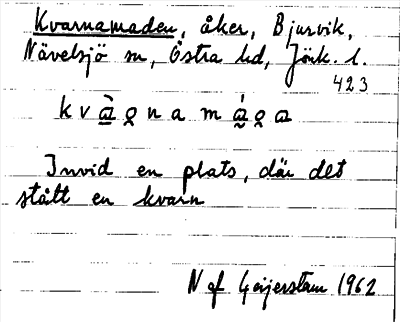 Kvarnamaden, åker, Bjurvik,
Nävelsjö sn, Östra hd, Jönk. l.
423
Invid en plats, där det
stått en kvarn
N af Geijerstam 1962